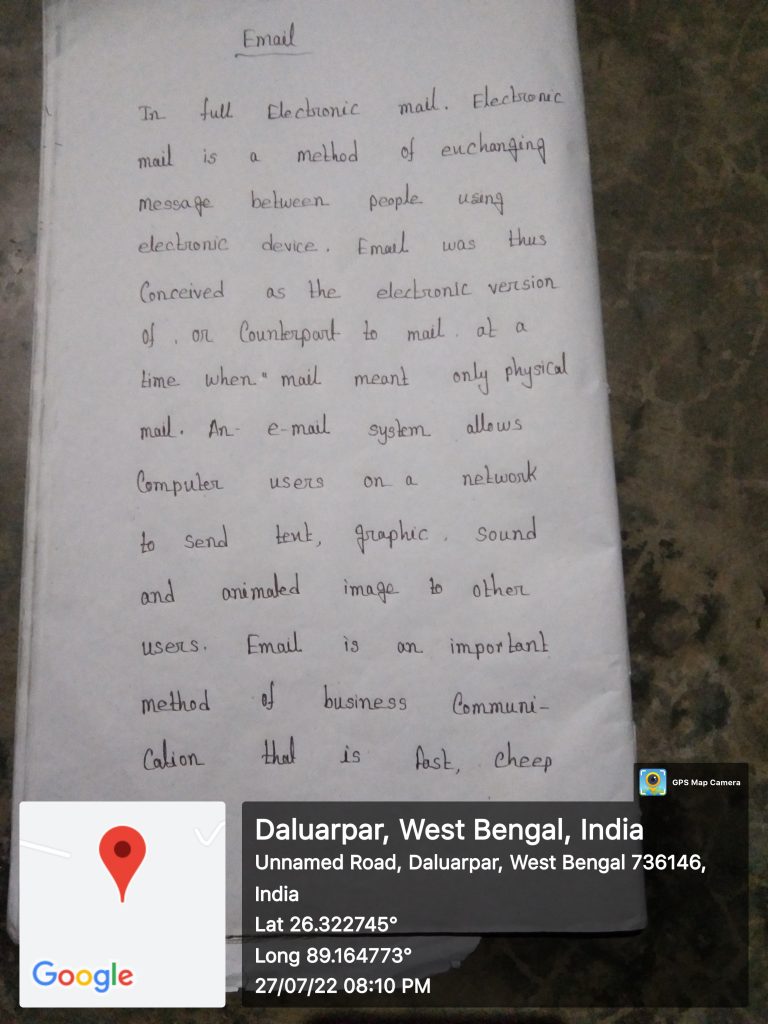 Email
In full Electronic mail. Electronic
mail is a method of exchanging
message between people using
electronic device. Email was thus
Conceived as the electronic version
of, or Counterpart to mail. at a
time when "mail meant only physical
mail. An- e-mail system allows
Computer users on a network
to send text, graphic, sound
and animated image to other
users. Email is an important
method of business Communi-
Cation that is fast, cheep
GPS Map Camera
Daluarpar, West Bengal, India
Unnamed Road, Daluarpar, West Bengal 736146,
India
Lat 26.322745°
Long 89.164773°
27/07/22 08:10 PM
Google